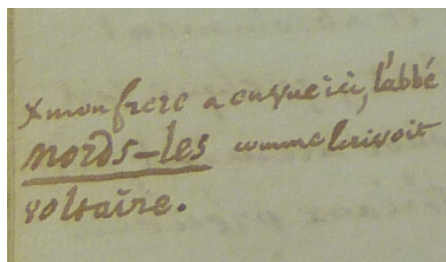 x mon frere a en vue ici, l'abbé
mords-les comme l'ecrivoit
voltaire.